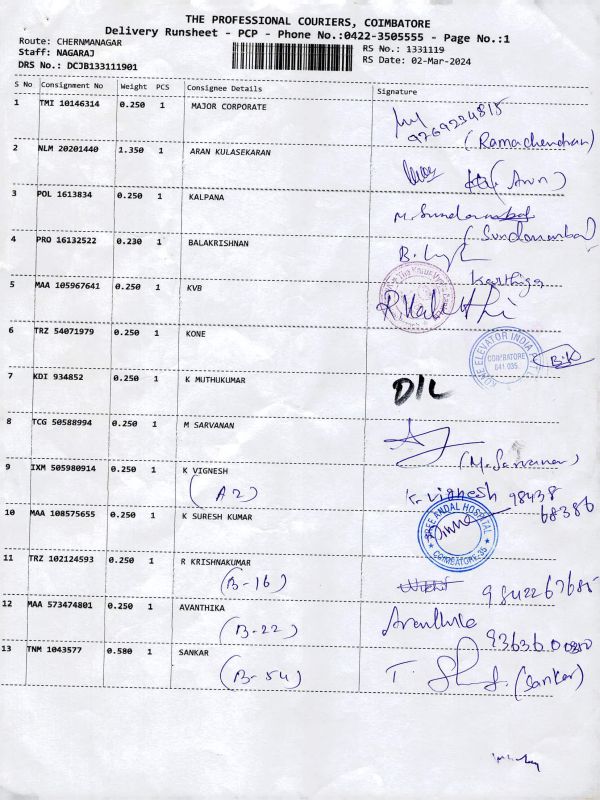 THE PROFESSIONAL COURIERS, COIMBATORE
Delivery Runsheet - PCP - Phone No.:0422-3505555 - Page No.:1
Route: CHERNMANAGAR
RS No.: 1331119
Staff: NAGARAJ
RS Date: 02-Mar-2024
DRS No.: DCJB133111901
S No Consignment No Weight PCS Consignee Details Signature
1 TMI 10146314 0.250 1 MAJOR CORPORATE
9769234815
(Ramachendran)
2 NLM 20201440 1.350 1 ARAN KULASEKARAN
(Arun)
3 POL 1613834 0.250 1 KALPANA
M. Sundarambal
(Sundarambal)
4 PRO 16132522 0.230 1 BALAKRISHNAN
Karthiga
5 MAA 105967641 0.250 1 KVB
6 TRZ 54071979 0.250 1 KONE
KONE ELEVATOR INDIA
COIMBATORE
641 035.
B.K
7 KDI 934852 0.250 1 K MUTHUKUMAR
D/L
8 TCG 50588994 0.250 1 M SARVANAN
(M. Sarvanan)
9 IXM 505980914 0.250 1 K VIGNESH
(A2)
K. Vignesh 98438
68386
10 MAA 108575655 0.250 1 K SURESH KUMAR
SREE ANDAL HOSPITAL
COIMBATORE-35
11 TRZ 102124593 0.250 1 R KRISHNAKUMAR
(B-16)
9842267685
12 MAA 573474801 0.250 1 AVANTHIKA
(B-22)
Avanthika
13 TNM 1043577 0.580 1 SANKAR
(B-54)
T. (Sankar)